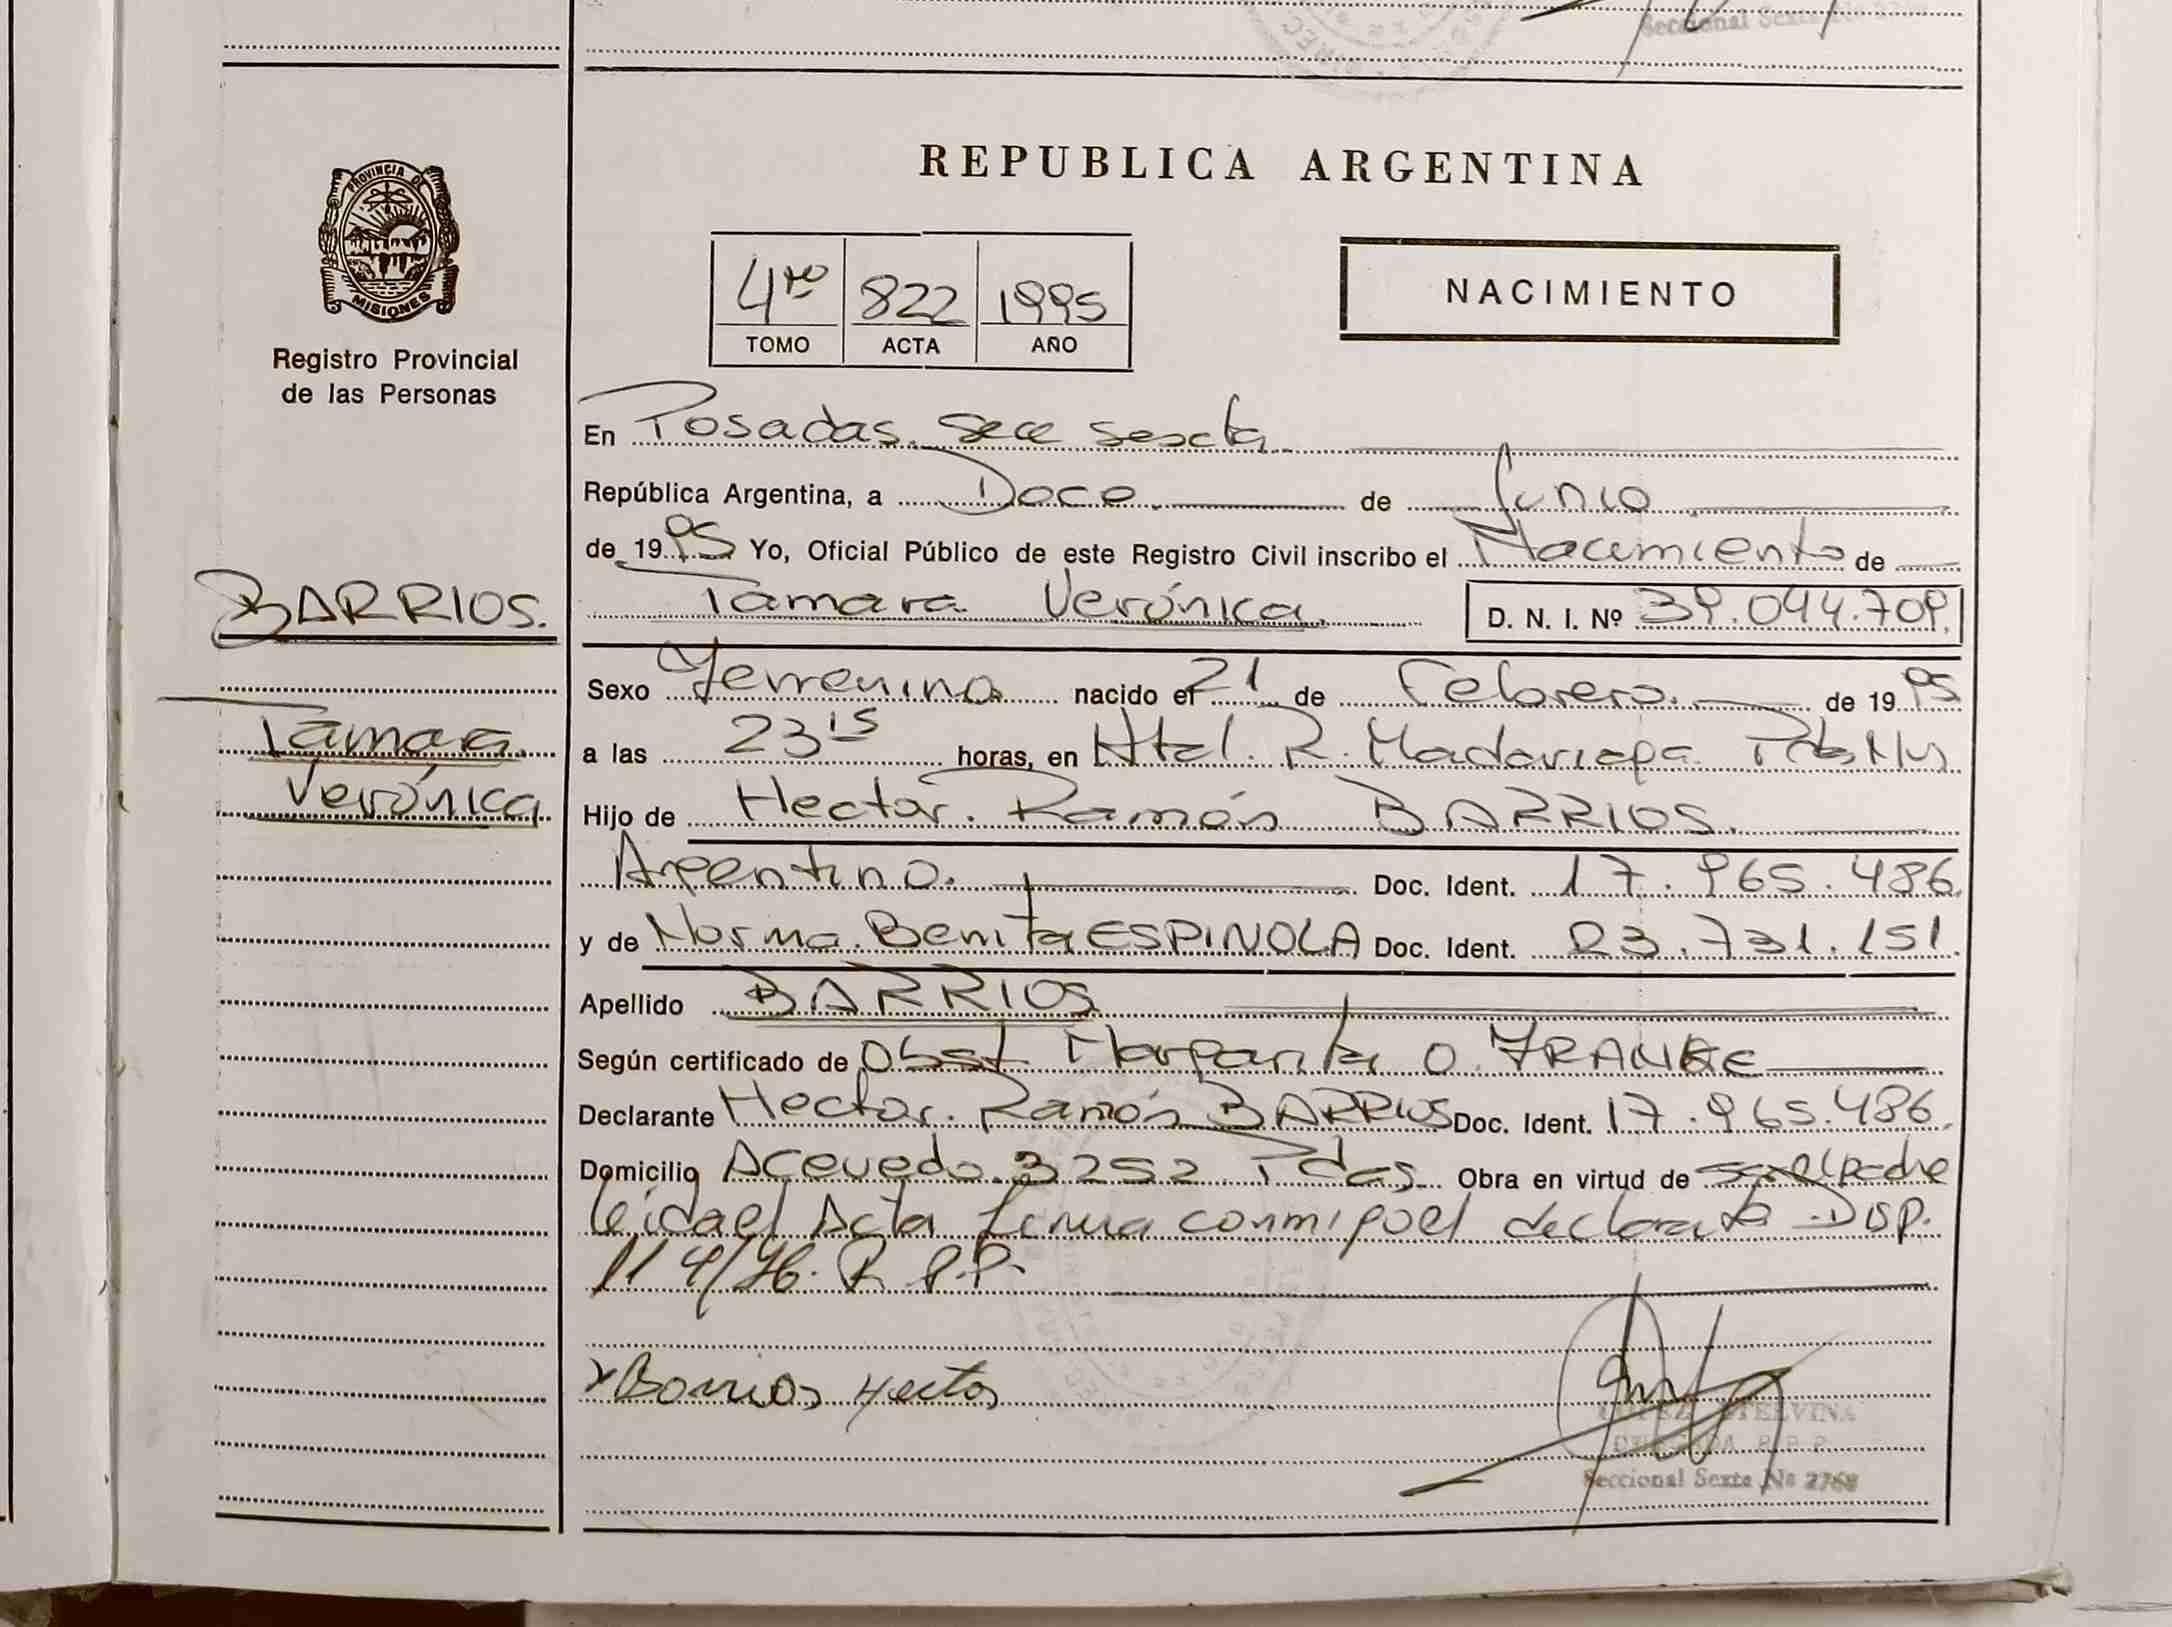 Seccional Sexta Nº 2768
REPUBLICA ARGENTINA
PROVINCIA DE
MISIONES
Registro Provincial
de las Personas
4to 822 1995
TOMO ACTA AÑO
NACIMIENTO
En Posadas. Secc sexta
República Argentina, a Doce de Junio
de 1995 Yo, Oficial Público de este Registro Civil inscribo el Nacimiento de
BARRIOS.
Tamara Verónica
Tamara Verónica. D. N. I. Nº 39.044.709.
Sexo Femenino nacido el 21 de Febrero. de 1995
a las 23 15 horas, en Htal. R. Madariaga Pdas Mns
Hijo de Hector. Ramón BARRIOS.
Argentino. Doc. Ident. 17.965.486.
y de Norma. Benita ESPINOLA Doc. Ident. 23.731.151.
Apellido BARRIOS
Según certificado de Obst Margarita O. FRANKE
Declarante Hector. Ramón BARRIOS Doc. Ident. 17.965.486.
Domicilio Acevedo 3252 Pdas. Obra en virtud de ser el padre
leida el Acta firma conmigo el declarante Disp.
114/76. R.P.P.
x Barrios Hector
LOPEZ ETELVINA
DELEGADA R.P.P.
Seccional Sexta Nº 2768